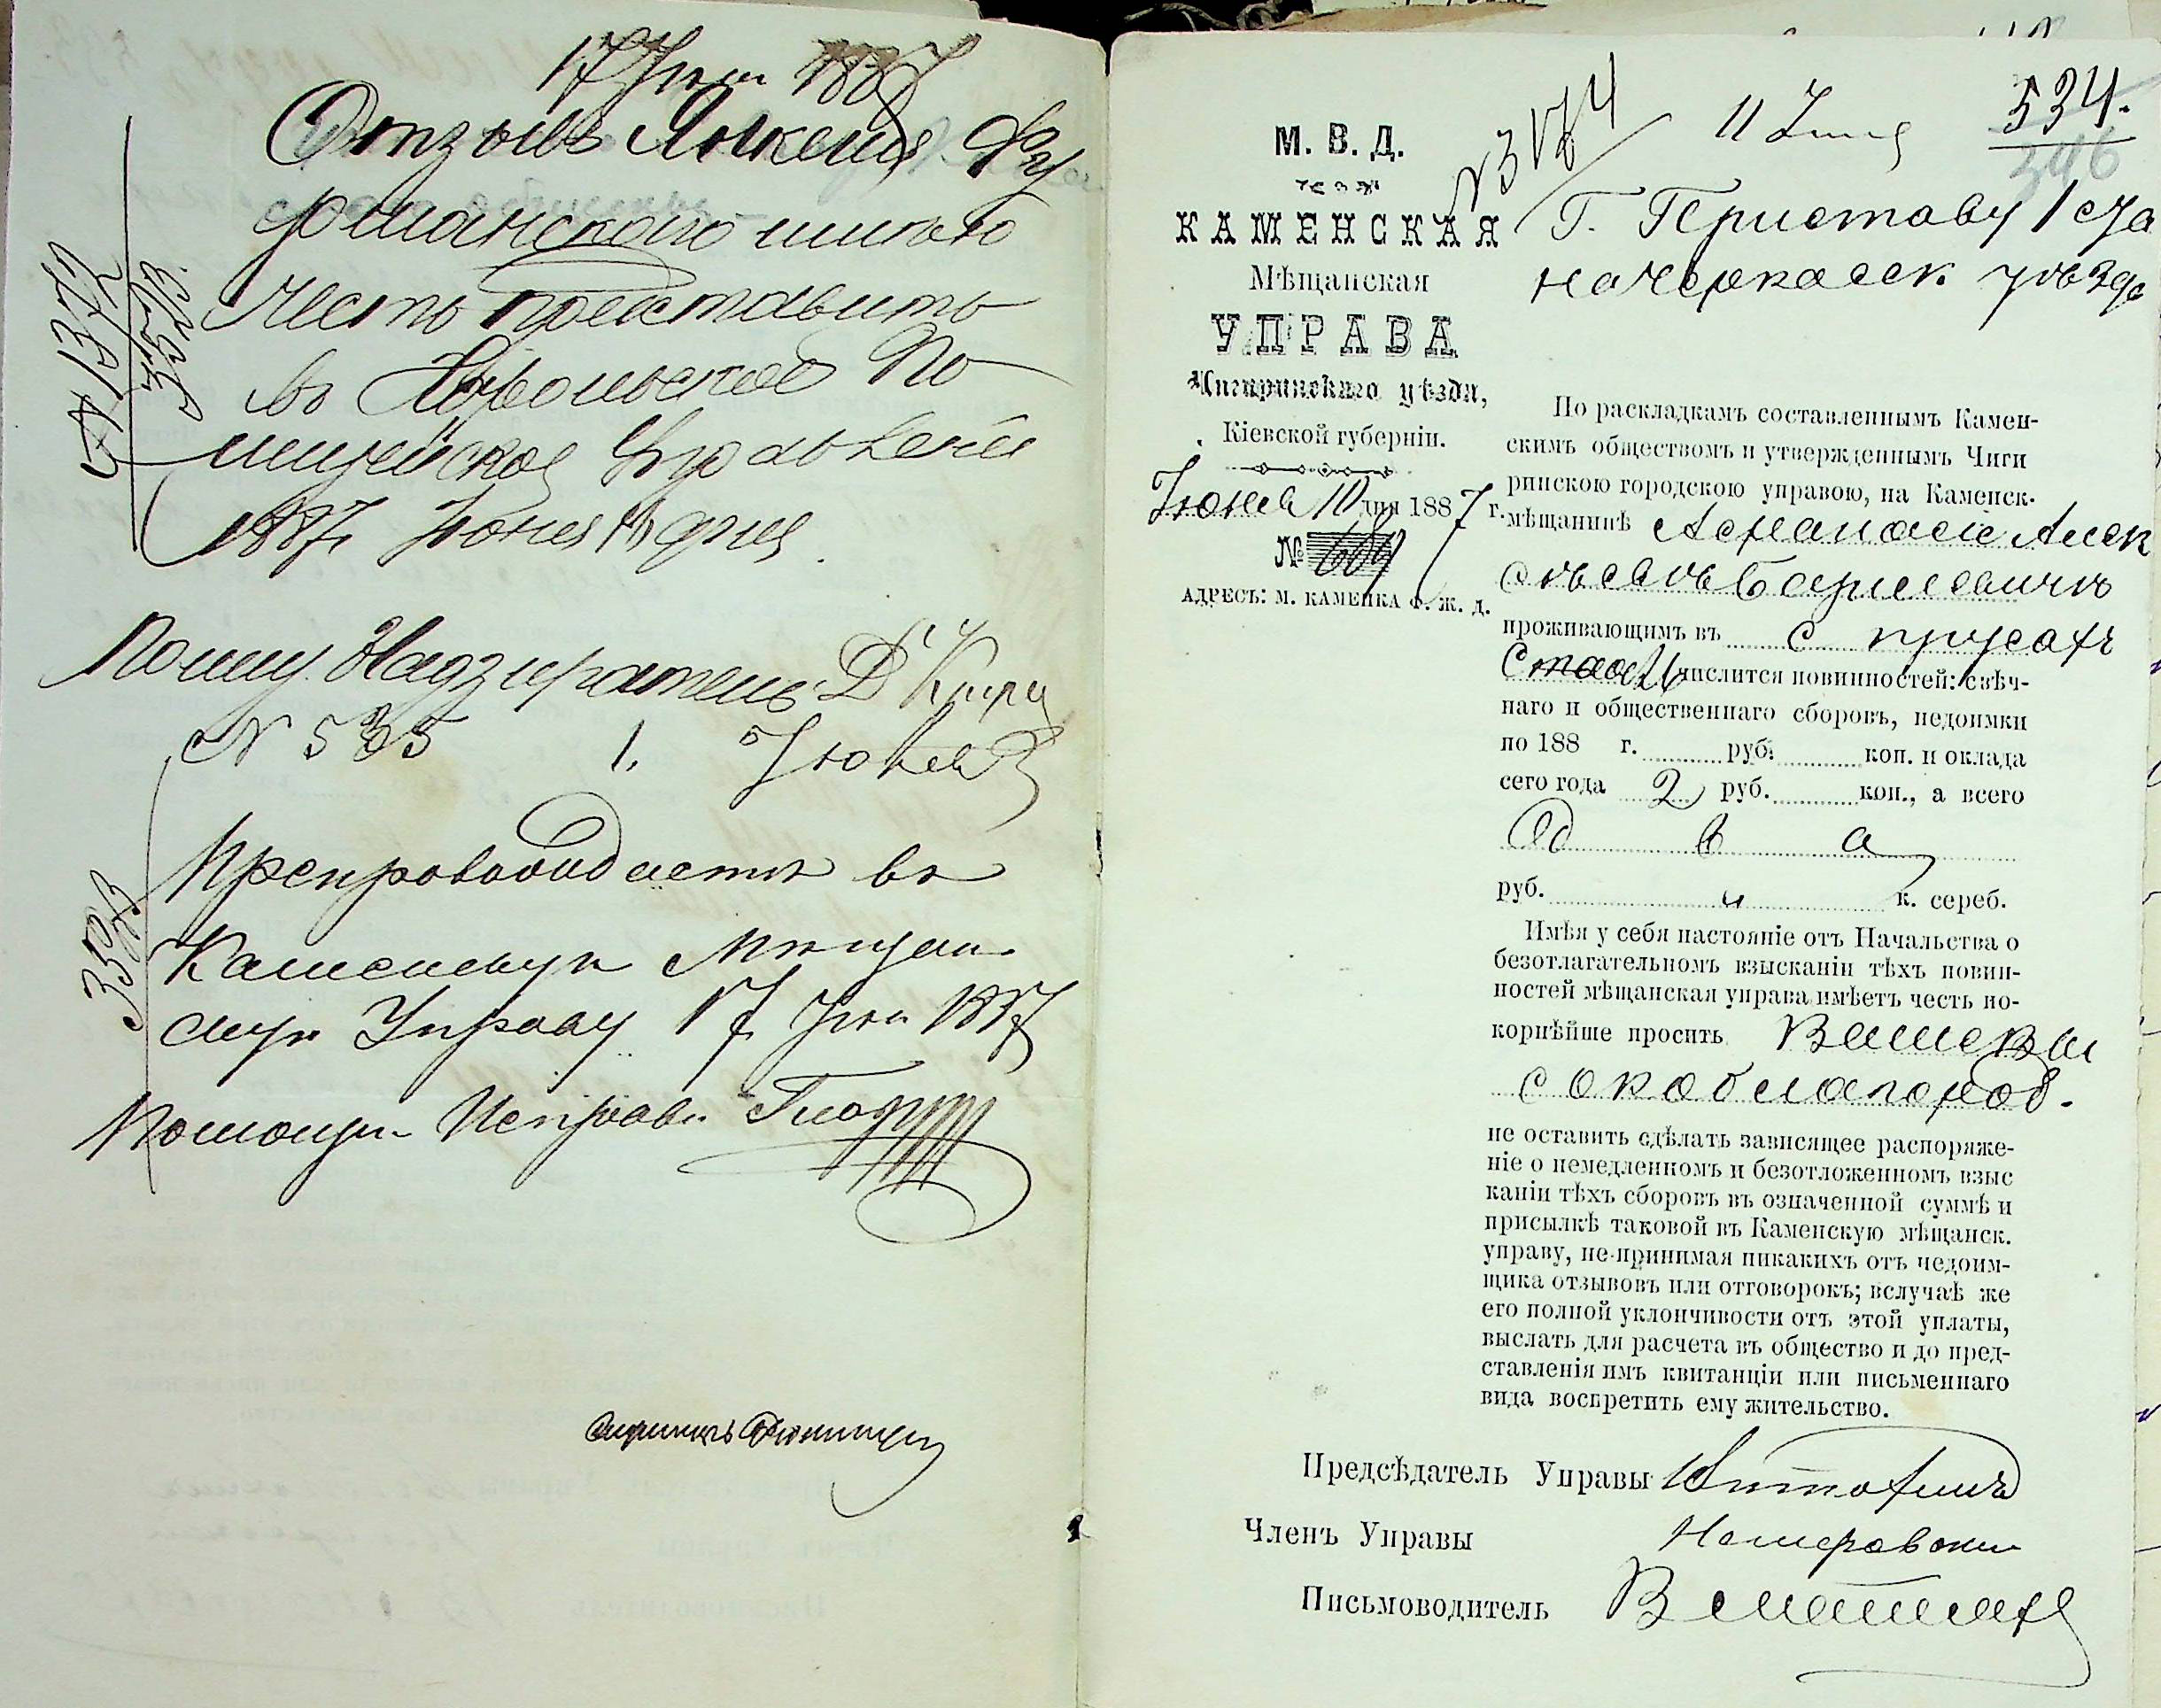 17 Іюн 1887
Отзывъ Янкеля Фу
рманскаго имѣю
честь представить
во Хорольское По
лицейское Управленіе
1887 Іюня дня
Полиц. Надзиратель
№ 535 1. Іюня
Препровождается въ
Каменскую Мѣщан
скую Управу 17 Іюн 1887
Помощн. Исправн.
№ 1312
3573
3573
М. В. Д.
КАМЕНСКАЯ
Мѣщанская
УПРАВА
Чигиринскаго уѣзда,
Кіевской губерніи.
Іюня 10 дня 1887 г.
№ 689
АДРЕСЪ: М. КАМЕНКА Ф. Ж. Д.
№ 3174
11 Іюня
534.
346
Г. Приставу 1 ста
на Черкасск. уѣзда
По раскладкамъ составленнымъ Камен-
скимъ обществомъ и утвержденнымъ Чиги
ринскою городскою управою, на Каменск.
мѣщанинѣ Афанасіе Алек
сѣевѣ
проживающимъ въ с Прусахъ
числится повинностей: свѣч-
наго и общественнаго сборовъ, недоимки
по 188 г. руб. коп. и оклада
сего года 2 руб. коп., а всего
Два
руб. к. сереб.
Имѣя у себя настояніе отъ Начальства о
безотлагательномъ взысканіи тѣхъ повин-
ностей мѣщанская управа имѣетъ честь по-
корнѣйше просить Ваше Вы
сокоблагород.
не оставить сдѣлать зависящее распоряже-
ніе о немедленномъ и безотложенномъ взыс
каніи тѣхъ сборовъ въ означенной суммѣ и
присылкѣ таковой въ Каменскую мѣщанск.
управу, не принимая никакихъ отъ недоим-
щика отзывовъ или отговорокъ; вслучаѣ же
его полной уклончивости отъ этой уплаты,
выслать для расчета въ общество и до пред-
ставленія имъ квитанціи или письменнаго
вида воспретить ему жительство.
Предсѣдатель Управы
Членъ Управы
Письмоводитель